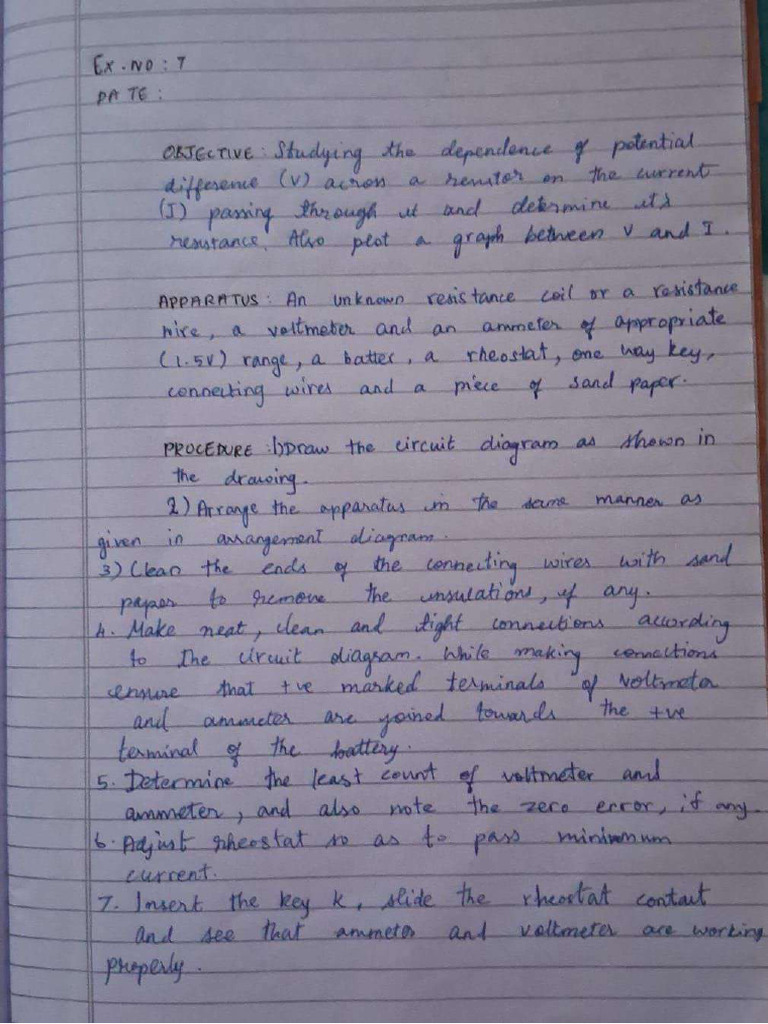 EX.NO: 7
DATE:
OBJECTIVE: Studying the dependence of potential
difference (V) across a resistor on the current
(I) passing through it and determine it's
resistance. Also plot a graph between V and I.
APPARATUS: An unknown resistance coil or a resistance
wire, a voltmeter and an ammeter of appropriate
(1.5V) range, a batter, a rheostat, one way key,
connecting wires and a piece of sand paper.
PROCEDURE: 1) Draw the circuit diagram as shown in
the drawing.
2) Arrange the apparatus in the same manner as
given in arrangement diagram.
3) Clean the ends of the connecting wires with sand
paper to remove the insulations, if any.
4. Make neat, clean and tight connections according
to the circuit diagram. While making connections
ensure that +ve marked terminals of voltmeter
and ammeter are joined towards the +ve
terminal of the battery.
5. Determine the least count of voltmeter and
ammeter, and also note the zero error, if any.
6. Adjust rheostat so as to pass minimum
current.
7. Insert the key K, slide the rheostat contact
and see that ammeter and voltmeter are working
properly.